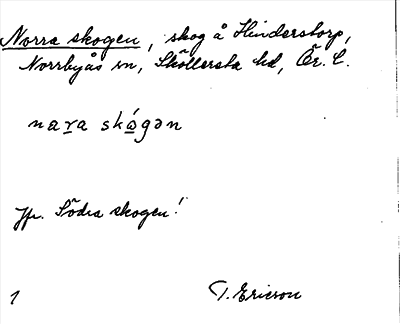 Norra skogen, skog å Hinderstorp,
Norrbyås sn, Sköllersta hd, Ör. l.
nara skógən
Jfr. Södra skogen!
1 T. Ericson